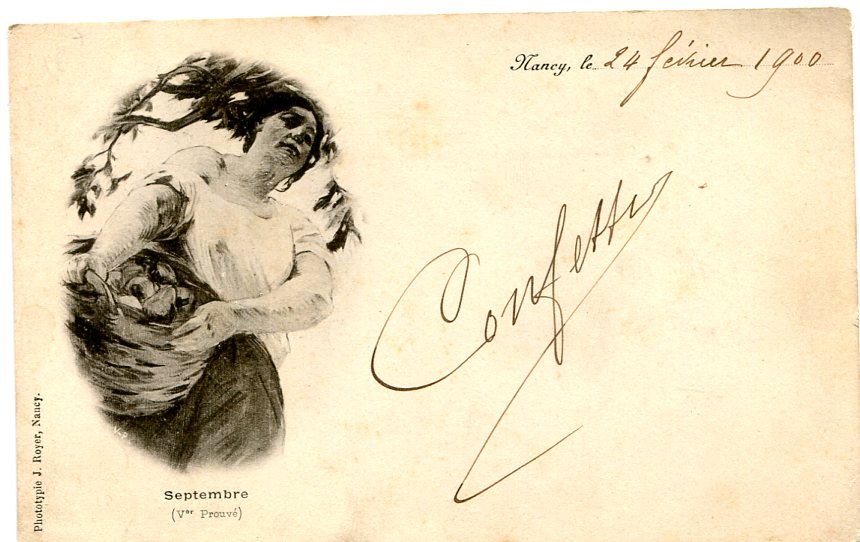 Nancy, le 24 février 1900
Confetti
Septembre
(Vor Prouvé)
Phototypie J. Royer, Nancy.